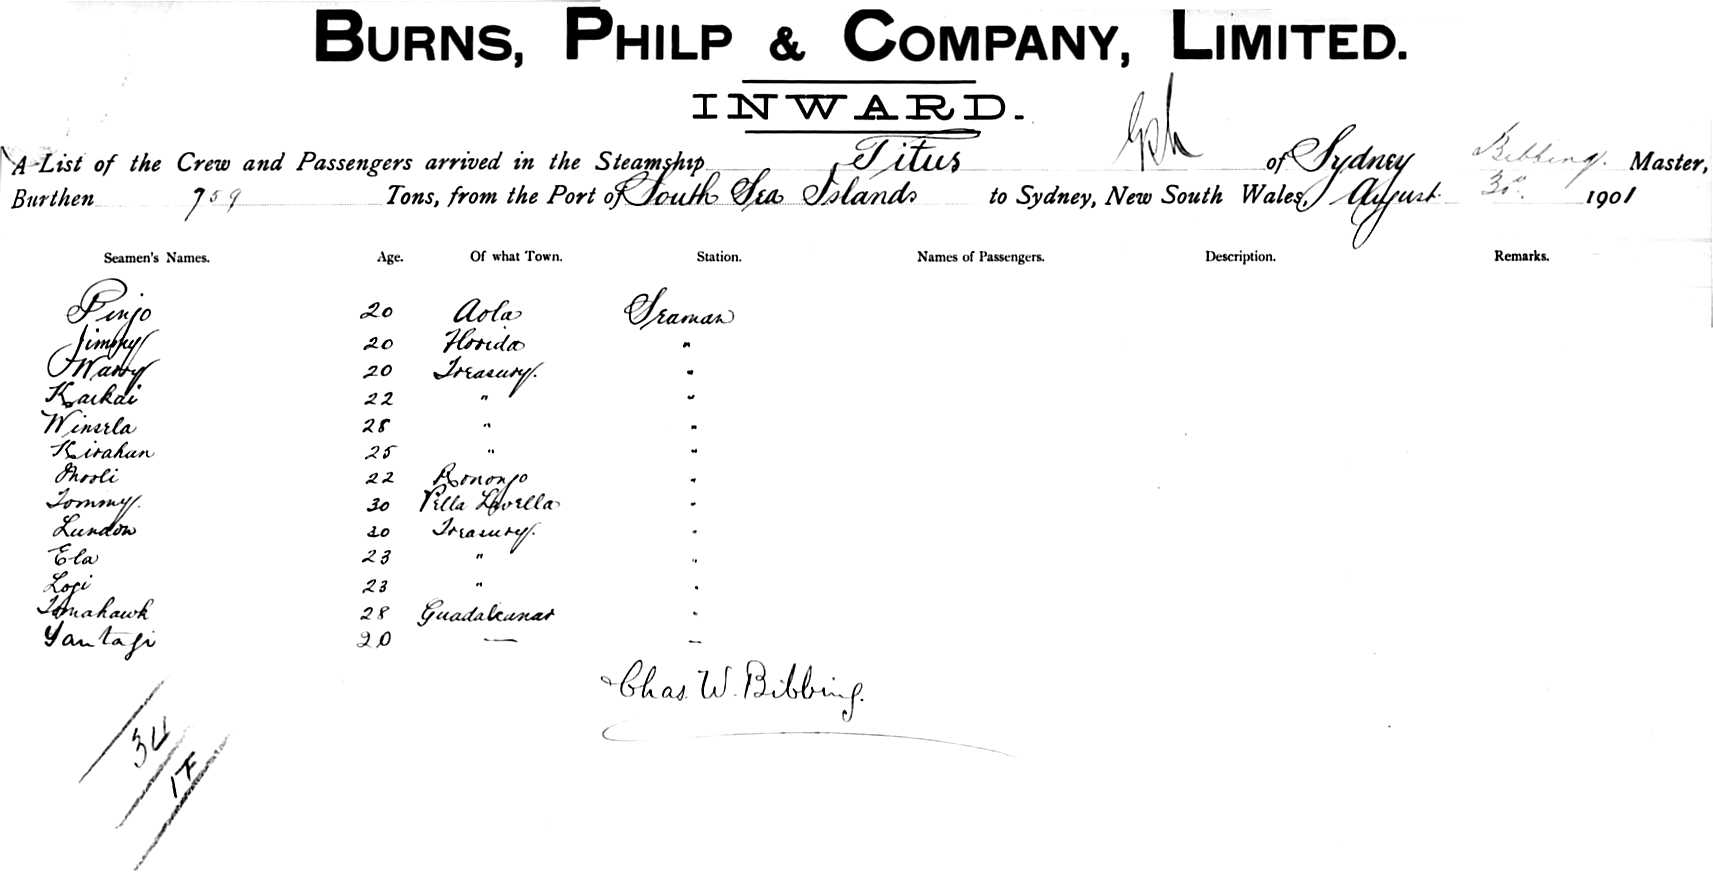 BURNS, PHILP & COMPANY, LIMITED.
INWARD.
A List of the Crew and Passengers arrived in the Steamship Titus of Sydney Bibbing. Master,
Burthen 759 Tons, from the Port of South Sea Islands to Sydney, New South Wales, August 1901
Seamen's Names. Age. Of what Town. Station. Names of Passengers. Description. Remarks.
Pinjo 20 Aola Seaman
Jimmy 20 Florida "
Harry 20 Treasury. "
Kaikai 22 " "
Winsela 28 " "
Kirahun 25 " "
22 Ronongo "
Tommy. 30 Vella Lavella "
Lundon 30 Treasury. "
Ela 23 " "
Logi 23 " "
Tomahawk 28 Guadalcanar "
Yantagi 20 — —
Chas. W. Bibbing.
34